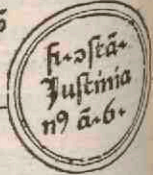 fi·ɔstā·
Justinia
nꝰ ā·6·